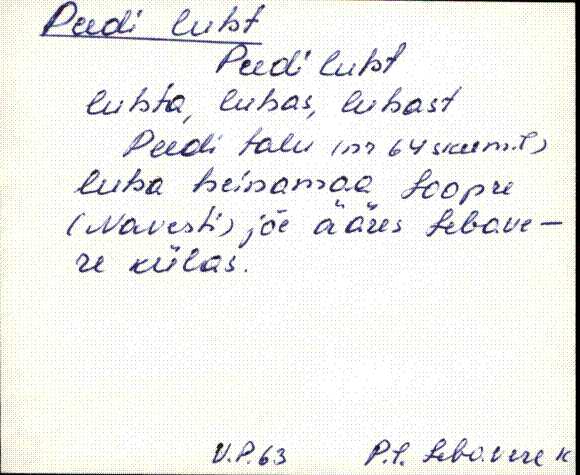 Peedi luht
Peedi luht
luhta, luhas, luhast
Peedi talu (nr 64 skeemil)
luha heinamaa Loopre
(Navesti) jõe ääres Lebave-
re külas.
V.P. 63 P.l. Lebavere k